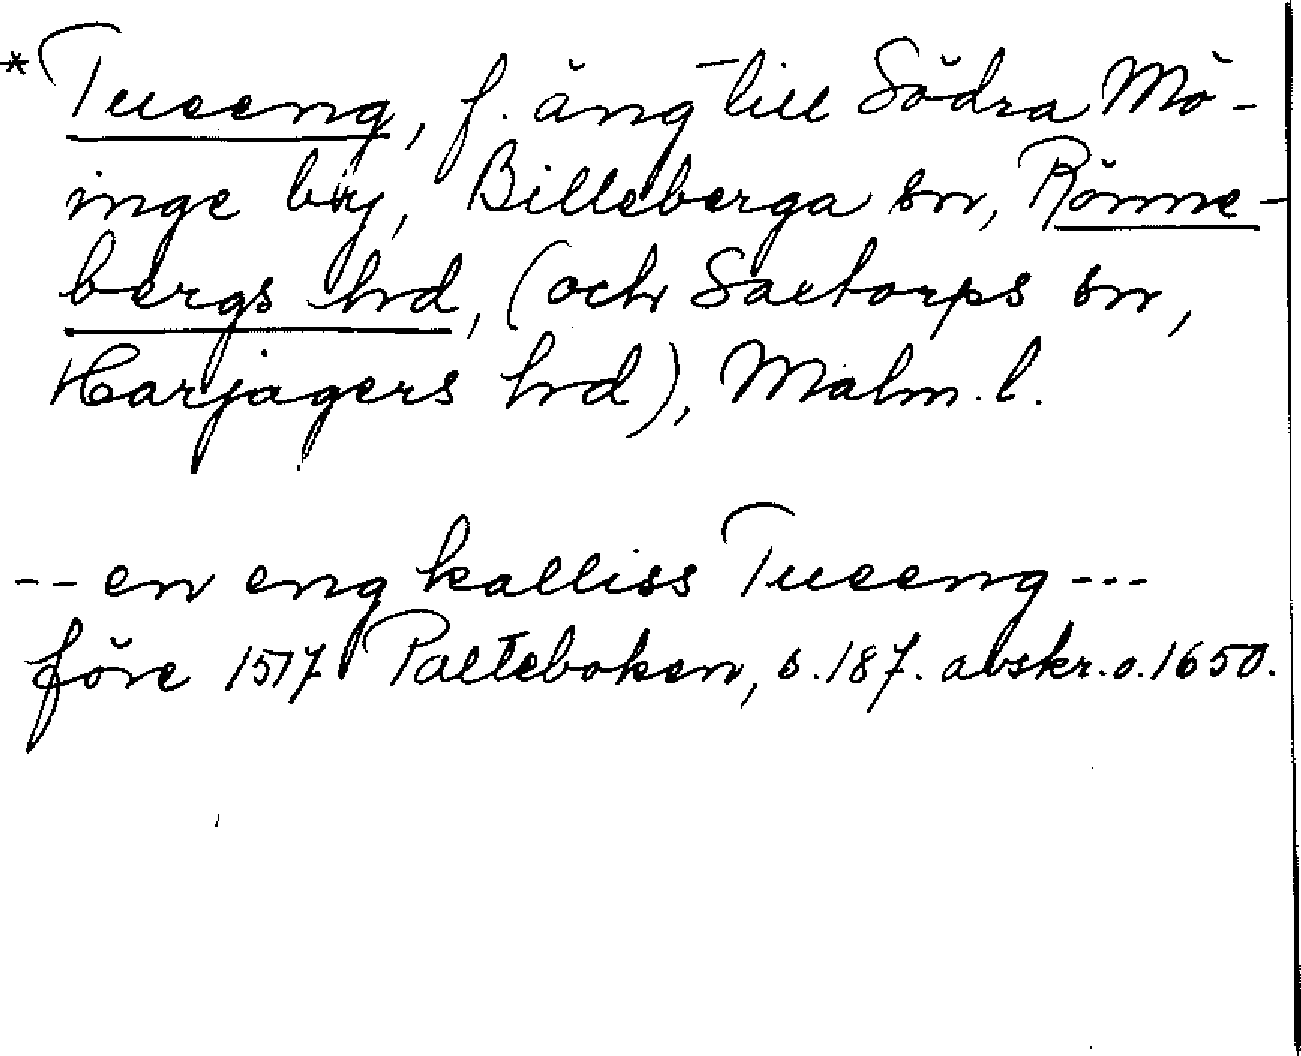 *Tueeng, f. äng till Södra Mö-
inge by, Billeberga sn, Rönne-
bergs hrd, (och Saxtorps sn,
Harjagers hrd), Malm. l.
-- en eng kalliss Tueeng ---
före 1517 Palteboken, s. 187. avskr. o. 1650.